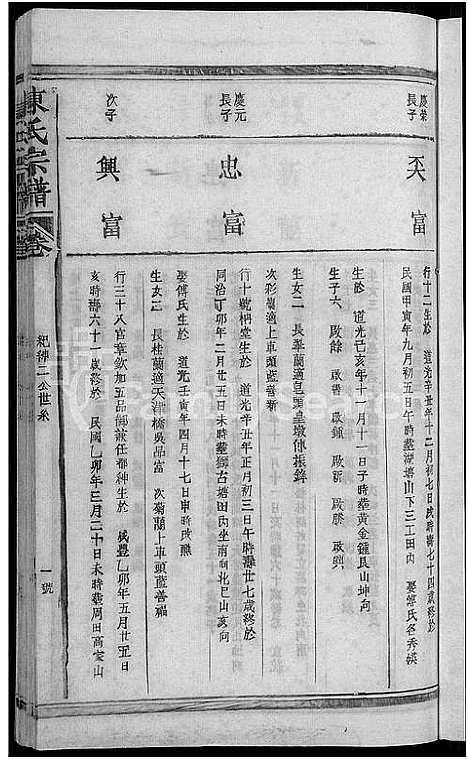 慶榮長子
天富
行十二生於 道光辛丑年十二月初七戌時壽七十四歲終於
民國甲寅年九月初五日午時葬湖塘山下三工田內 娶傅氏名秀娛
生於 道光己亥年十一月十一日子時葬黃金鍾艮山坤向
生子六 啟餘 啟書 啟鍾 啟新 啟勝 啟興
生女二
慶元長子
忠富
次彩蘭適上車頭藍喜新
行十 堂生於 道光辛丑年正月初三日午時壽廿七歲終於
同治丁卯年二月廿五日未時葬獅古塘田內坐南向北巳山亥向
娶傅氏生於 道光壬寅年四月十七日申時改醮
生女二 長桂蘭適天津橋吳品富 次菊蘭上車頭藍善福
次子
興富
行三十八官章欽加五品御兼任都紳生於 咸豐乙卯年五月廿五日
亥時壽六十一歲終於 民國乙卯年三月二十日未時葬周田高家山
陳氏宗譜
卷
紀緯二公世系
一號